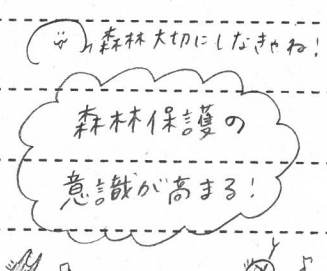 森林大切にしなきゃね！
森林保護の
意識が高まる！